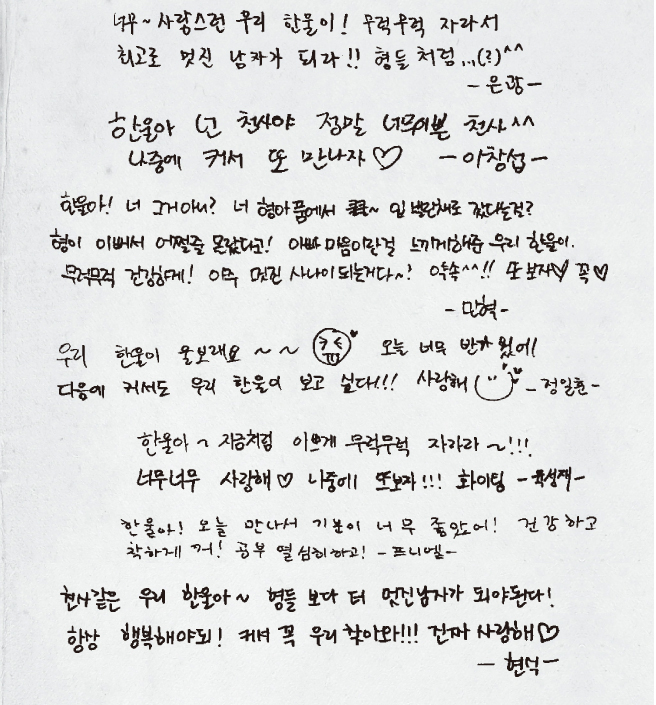 너무~ 사랑스런 우리 한울이! 무럭무럭 자라서
최고로 멋진 남자가 되라!! 형들처럼...(?)^^
-은광-
한울아 넌 천사야 정말 너무이쁜 천사^^
나중에 커서 또 만나자♡ -이창섭-
한울아! 너 그거아니? 너 형아품에서 입 벌린채로 잤다는걸?
형이 이뻐서 어쩔줄 몰랐다고! 아빠 마음이란걸 느끼게해준 우리 한울이.
무럭무럭 건강하게! 아주 멋진 사나이 되는거다~? 약속^^!! 또 보자♥ 꼭♥
-민혁-
우리 한울이 울보래요 ~~ 오늘 너무 반가웠어!
다음에 커서도 우리 한울이 보고 싶다!!! 사랑해 -정일훈-
한울아~ 지금처럼 이쁘게 무럭무럭 자라라~!!!
너무너무 사랑해♡ 나중에 또보자!!! 화이팅 -육성재-
한울아! 오늘 만나서 기분이 너무 좋았어! 건강하고
착하게 커! 공부 열심히하고! -프니엘-
천사같은 우리 한울아~ 형들 보다 더 멋진남자가 되야된다!
항상 행복해야되! 커서 꼭 우리 찾아와!!! 진짜 사랑해♡
-현식-